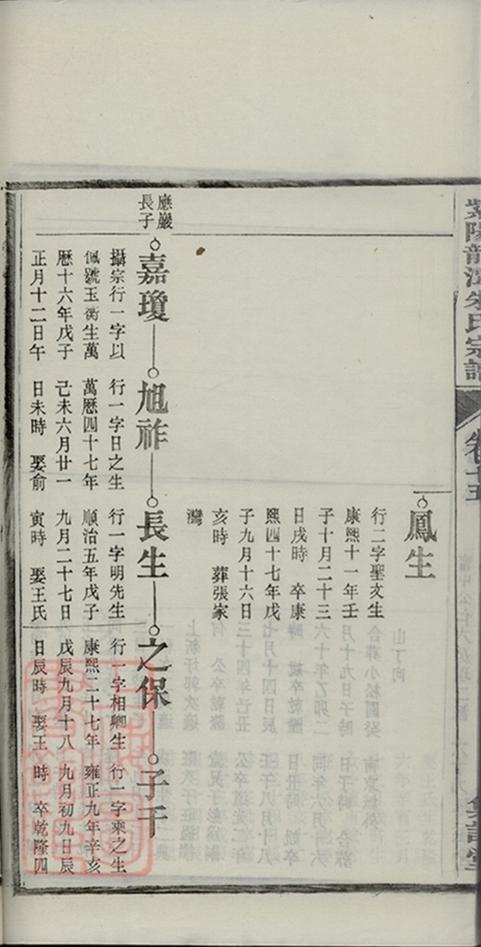 紫陽龍溪朱氏宗譜
卷十五
鳳生
行二字聖文生
康熙十一年壬
子十月二十三
日戌時 卒康
熙四十七年戊
子九月十六日
亥時 葬張家
灣
應巖
長子
嘉瓊
攝宗行一字以
佩號玉衡生萬
曆十六年戊子
正月十二日午
旭祚
行一字日之生
萬曆四十七年
己未六月廿一
日未時 娶俞
長生
行一字明先生
順治五年戊子
九月二十七日
寅時 娶王氏
之保
行一字相卿生
康熙二十七年
戊辰九月十八
日辰時 娶王
子千
行一字乘之生
雍正九年辛亥
九月初九日辰
時 卒乾隆四